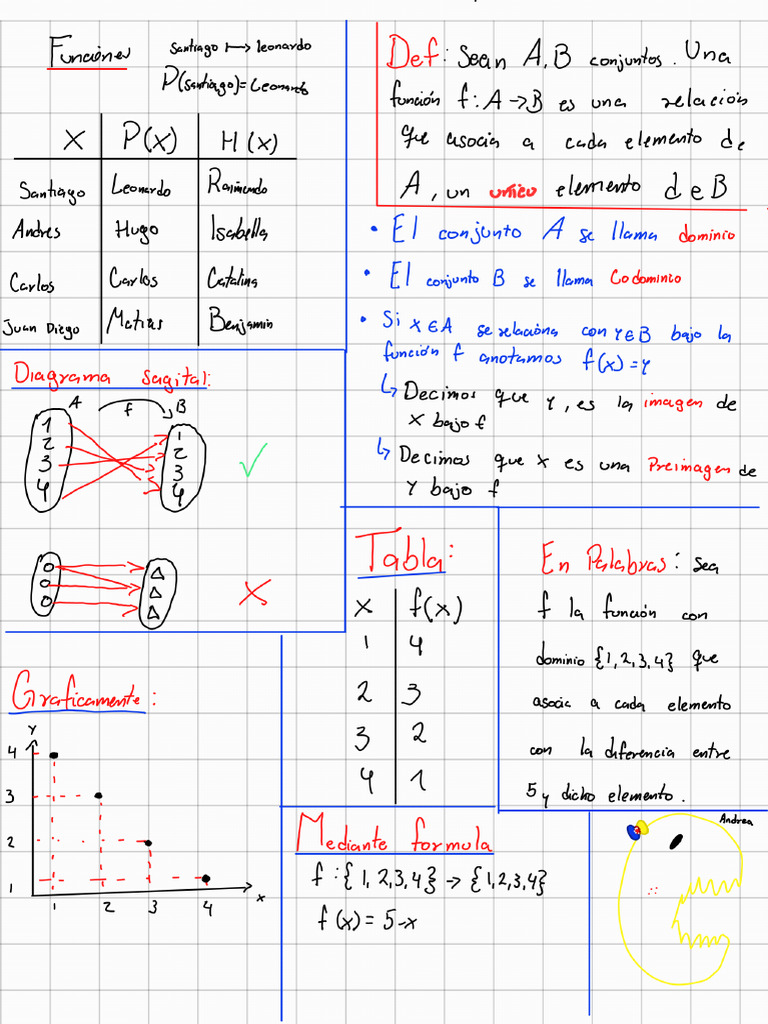 Funciones
Santiago ↦ Leonardo
P(Santiago)=Leonardo
X P(x) H(x)
Santiago Leonardo Raimundo
Andres Hugo Isabella
Carlos Carlos Catalina
Juan Diego Matias Benjamin
Def: Sean A, B conjuntos. Una
función f: A → B es una relación
que asocia a cada elemento de
A, un unico elemento de B
• El conjunto A se llama dominio
• El conjunto B se llama Codominio
• Si x ∈ A se relaciona con y ∈ B bajo la
función f anotamos f(x) = y
↳ Decimos que y, es la imagen de
x bajo f
↳ Decimos que x es una Preimagen de
y bajo f
Diagrama sagital:
A f B
1 1
2 2
3 3
4 4
Tabla:
x f(x)
1 4
2 3
3 2
4 1
En Palabras: sea
f la función con
dominio {1,2,3,4} que
asocia a cada elemento
con la diferencia entre
5 y dicho elemento.
Graficamente:
Y
4
3
2
1
1 2 3 4 x
Mediante formula
f: {1,2,3,4} → {1,2,3,4}
f(x) = 5-x
Andrea